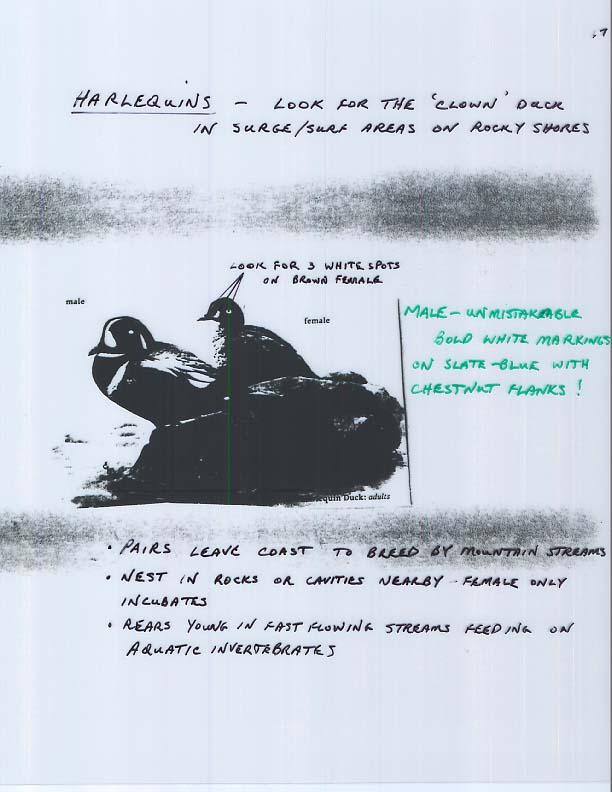 HARLEQUINS - LOOK FOR THE 'CLOWN' DUCK
IN SURGE/SURF AREAS ON ROCKY SHORES
LOOK FOR 3 WHITE SPOTS
ON BROWN FEMALE
male
female
MALE - UNMISTAKEABLE
BOLD WHITE MARKINGS
ON SLATE-BLUE WITH
CHESTNUT FLANKS!
equin Duck: adults
• PAIRS LEAVE COAST TO BREED BY MOUNTAIN STREAMS
• NEST IN ROCKS OR CAVITIES NEARBY - FEMALE ONLY
INCUBATES
• REARS YOUNG IN FAST FLOWING STREAMS FEEDING ON
AQUATIC INVERTEBRATES